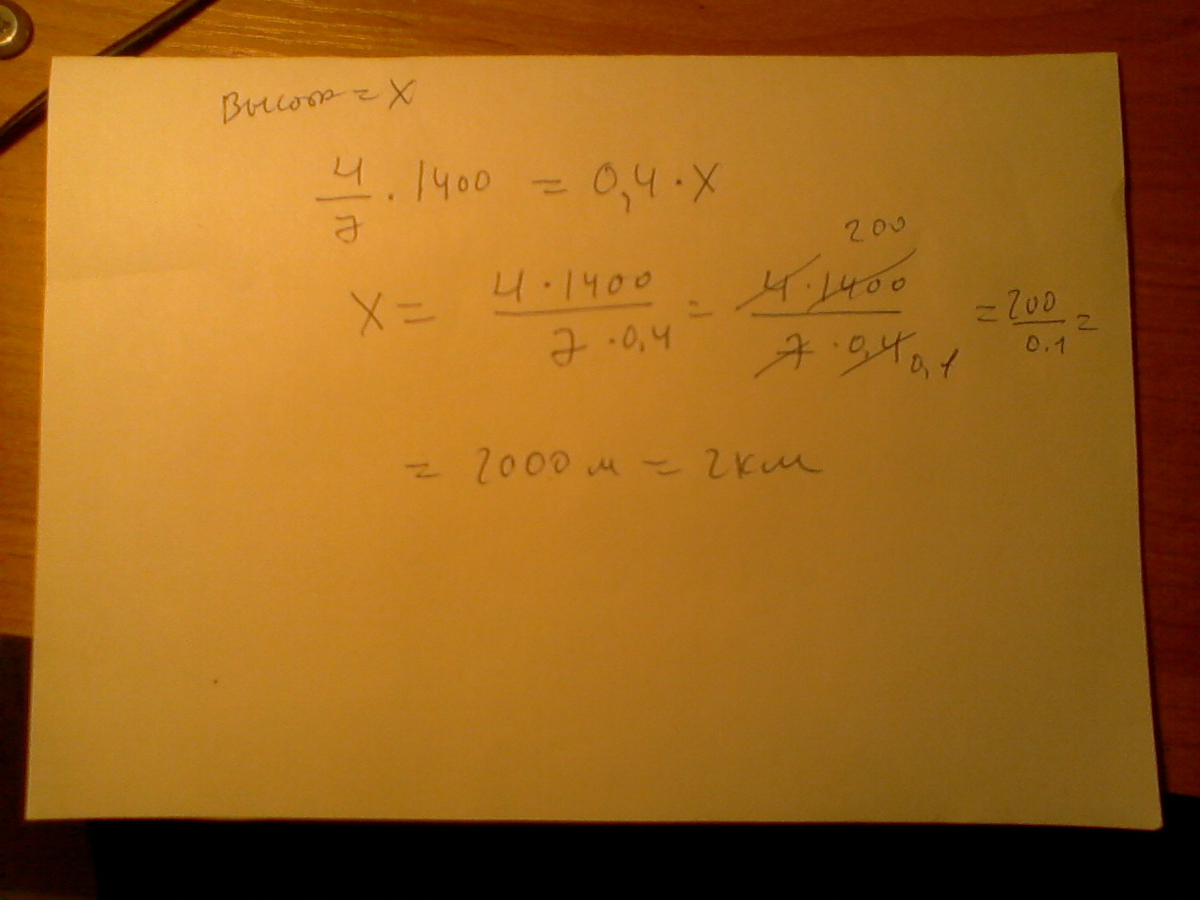 Высота = X
4/7 · 1400 = 0,4 · X
X = 4 · 1400 / 7 · 0,4 = 4 · 1400 200 / 7 · 0,4 0,1 = 200 / 0.1 =
= 2000 м = 2 км